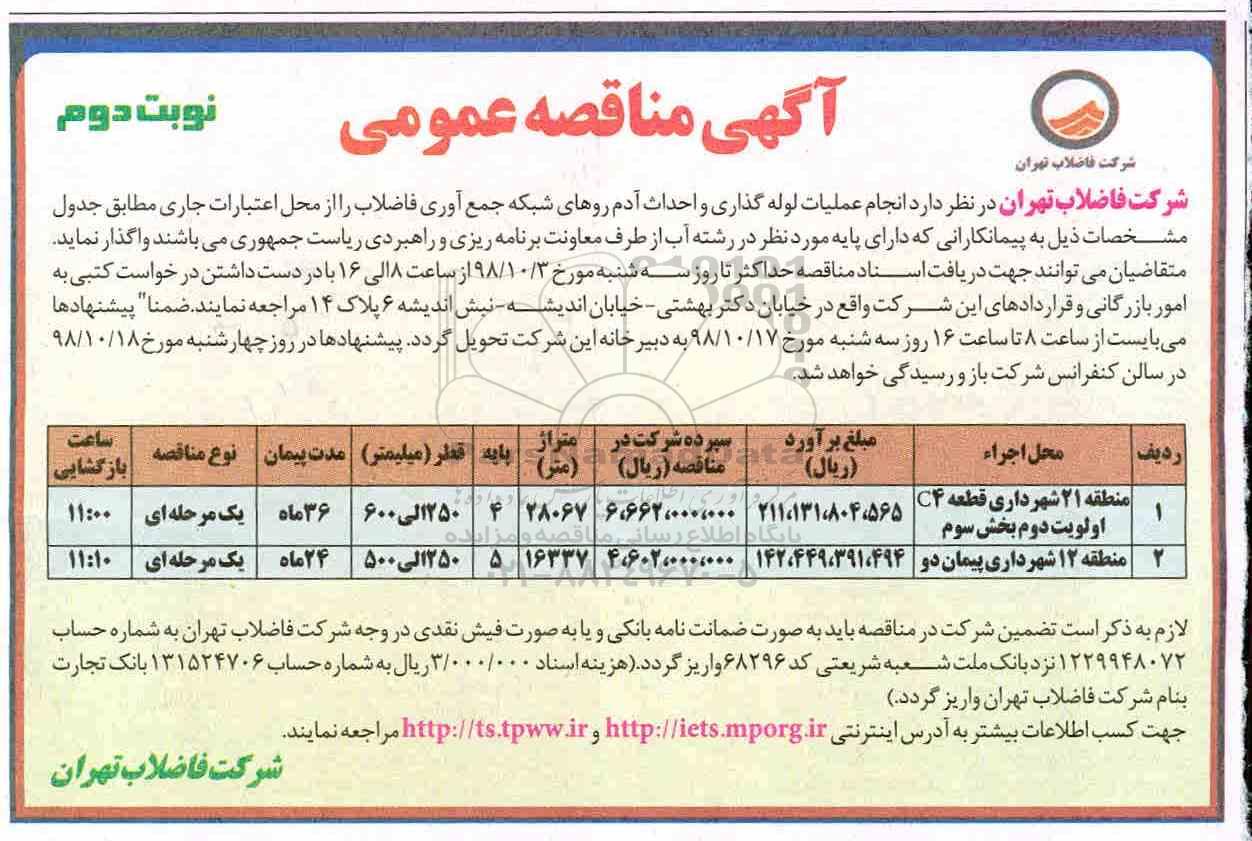 آگهی مناقصه عمومی
نوبت دوم
شرکت فاضلاب تهران
شرکت فاضلاب تهران در نظر دارد انجام عملیات لوله گذاری و احداث آدم روهای شبکه جمع آوری فاضلاب را از محل اعتبارات جاری مطابق جدول
مشخصات ذیل به پیمانکارانی که دارای پایه مورد نظر در رشته آب از طرف معاونت برنامه ریزی و راهبردی ریاست جمهوری می باشند واگذار نماید.
متقاضیان می توانند جهت دریافت اسناد مناقصه حداکثر تا روز سه شنبه مورخ ۹۸/۱۰/۳ از ساعت ۸ الی ۱۶ با در دست داشتن درخواست کتبی به
امور بازرگانی و قراردادهای این شرکت واقع در خیابان دکتر بهشتی-خیابان اندیشه-نبش اندیشه ۶ پلاک ۱۴ مراجعه نمایند.ضمنا" پیشنهادها
می‌بایست از ساعت ۸ تا ساعت ۱۶ روز سه شنبه مورخ ۹۸/۱۰/۱۷ به دبیرخانه این شرکت تحویل گردد. پیشنهادها در روز چهارشنبه مورخ ۹۸/۱۰/۱۸
در سالن کنفرانس شرکت باز و رسیدگی خواهد شد.
ردیف محل اجراء مبلغ برآورد (ریال) سپرده شرکت در مناقصه (ریال) متراژ (متر) پایه قطر (میلیمتر) مدت پیمان نوع مناقصه ساعت بازگشایی
۱ منطقه ۲۱ شهرداری قطعه C۴ اولویت دوم بخش سوم ۲۱۱،۱۳۱،۸۰۴،۵۶۵ ۶،۶۶۲،۰۰۰،۰۰۰ ۲۸۰۶۷ ۴ ۲۵۰الی۶۰۰ ۳۶ماه یک مرحله ای ۱۱:۰۰
۲ منطقه ۱۲ شهرداری پیمان دو ۱۴۲،۴۴۹،۳۹۱،۴۹۴ ۴،۶۰۲،۰۰۰،۰۰۰ ۱۶۳۳۷ ۵ ۲۵۰الی۵۰۰ ۲۴ماه یک مرحله ای ۱۱:۱۰
پایگاه اطلاع رسانی مناقصه و مزایده
۰۲۱-۸۸۳۴۹۶۷۰-۵
لازم به ذکر است تضمین شرکت در مناقصه باید به صورت ضمانت نامه بانکی و یا به صورت فیش نقدی در وجه شرکت فاضلاب تهران به شماره حساب
۱۲۲۹۹۴۸۰۷۲ نزد بانک ملت شعبه شریعتی کد ۶۸۲۹۶ واریز گردد.(هزینه اسناد ۳/۰۰۰/۰۰۰ ریال به شماره حساب ۱۳۱۵۲۴۷۰۶ بانک تجارت
بنام شرکت فاضلاب تهران واریز گردد.)
جهت کسب اطلاعات بیشتر به آدرس اینترنتی http://iets.mporg.ir و http://ts.tpww.ir مراجعه نمایند.
شرکت فاضلاب تهران